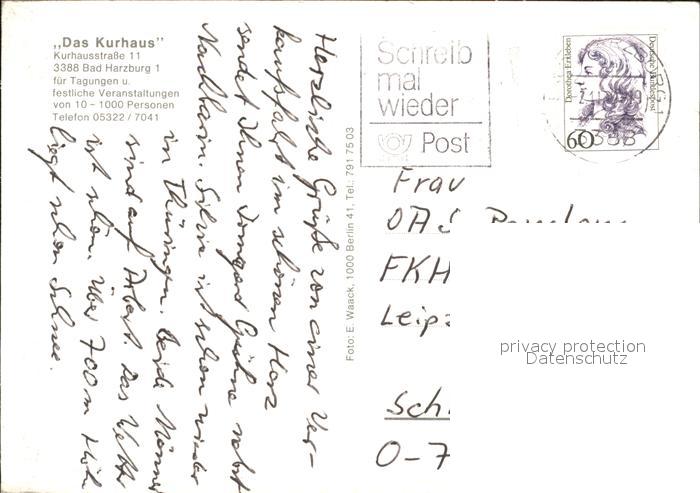 „Das Kurhaus”
Kurhausstraße 11
3388 Bad Harzburg 1
für Tagungen u.
festliche Veranstaltungen
von 10 – 1000 Personen
Telefon 05322 / 7041
Herzliche Grüße von einer Ver-
kaufsfahrt im schönen Harz
sendet Ihnen Irmgard nebst
Nachbarin. Silvia ist schon wieder
in Thüringen. Beide Männer
sind auf Arbeit. Das Wetter
ist schön. Über 700 m Höhe
liegt schon Schnee.
Foto: E. Waack, 1000 Berlin 41, Tel.: 791 75 03
Schreib
mal
wieder
Post
Dorothea Erxleben
Deutsche Bundespost
60
3388
Frau
FKH
Leip
Sch
O-7
privacy protection
Datenschutz